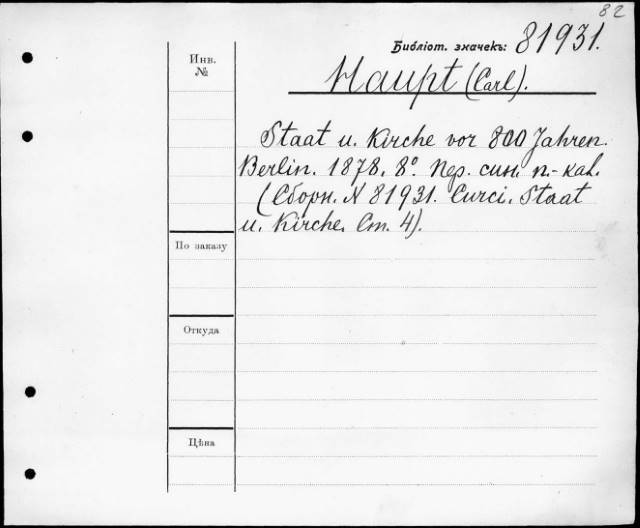 82
Библіот. значекъ: 81931.
Инв. №
Haupt (Carl).
Staat u. Kirche vor 800 Jahren.
Berlin. 1878. 8°. Пер. син. п.-кал.
(Сборн. N 81931. Curci. Staat
u. Kirche. Ст. 4).
По заказу
Откуда
Цѣна